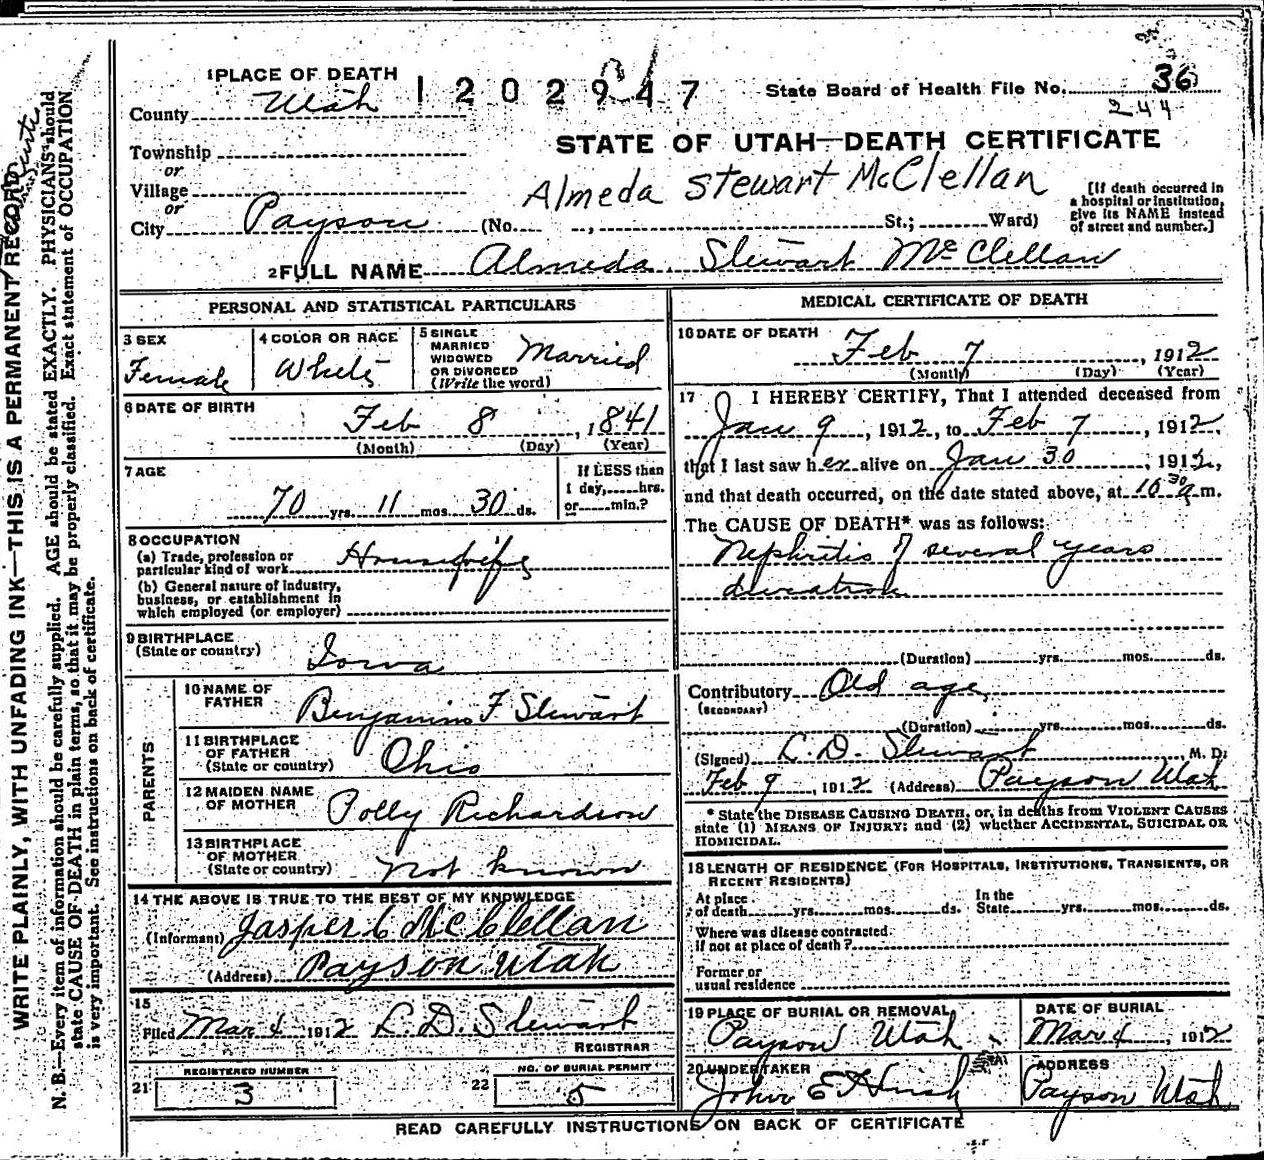 1 PLACE OF DEATH
1202947
State Board of Health File No. 36
244
County Utah
STATE OF UTAH—DEATH CERTIFICATE
Township
or
Village
or
Almeda Stewart McClellan
City Payson (No. , St.; Ward)
[If death occurred in
a hospital or institution,
give its NAME instead
of street and number.]
2 FULL NAME Almeda Stewart McClellan
PERSONAL AND STATISTICAL PARTICULARS
3 SEX
Female
4 COLOR OR RACE
White
5 SINGLE
MARRIED
WIDOWED
OR DIVORCED
(Write the word)
Married
6 DATE OF BIRTH
Feb 8, 1841
(Month) (Day) (Year)
7 AGE
70 yrs. 11 mos. 30 ds.
If LESS than
1 day, hrs.
or min.?
8 OCCUPATION
(a) Trade, profession or
particular kind of work Housewife
(b) General nature of industry,
business, or establishment in
which employed (or employer)
9 BIRTHPLACE
(State or country) Iowa
PARENTS
10 NAME OF
FATHER Benjamin F Stewart
11 BIRTHPLACE
OF FATHER
(State or country) Ohio
12 MAIDEN NAME
OF MOTHER Polly Richardson
13 BIRTHPLACE
OF MOTHER
(State or country) Not known
14 THE ABOVE IS TRUE TO THE BEST OF MY KNOWLEDGE
(Informant) Jasper C McClellan
(Address) Payson Utah
15
Filed Mar 4 1912 L. D. Stewart
REGISTRAR
21 REGISTERED NUMBER
3
22 NO. OF BURIAL PERMIT
5
MEDICAL CERTIFICATE OF DEATH
16 DATE OF DEATH
Feb 7, 1912
(Month) (Day) (Year)
17 I HEREBY CERTIFY, That I attended deceased from
Jan 9, 1912, to Feb 7, 1912,
that I last saw her alive on Jan 30, 1912,
and that death occurred, on the date stated above, at 10 30 a m.
The CAUSE OF DEATH* was as follows:
Nephritis of several years
duration
(Duration) yrs. mos. ds.
Contributory Old age
(SECONDARY)
(Duration) yrs. mos. ds.
(Signed) L. D. Stewart M. D.
Feb 9, 1912 (Address) Payson Utah
* State the DISEASE CAUSING DEATH, or, in deaths from VIOLENT CAUSES
state (1) MEANS OF INJURY; and (2) whether ACCIDENTAL, SUICIDAL OR
HOMICIDAL.
18 LENGTH OF RESIDENCE (FOR HOSPITALS, INSTITUTIONS, TRANSIENTS, OR
RECENT RESIDENTS)
At place
of death yrs. mos. ds.
In the
State yrs. mos. ds.
Where was disease contracted
if not at place of death?
Former or
usual residence
19 PLACE OF BURIAL OR REMOVAL
Payson Utah
DATE OF BURIAL
Mar 4, 1912
20 UNDERTAKER
John E Huish
ADDRESS
Payson Utah
READ CAREFULLY INSTRUCTIONS ON BACK OF CERTIFICATE
WRITE PLAINLY, WITH UNFADING INK—THIS IS A PERMANENT RECORD
N. B.—Every item of information should be carefully supplied. AGE should be stated EXACTLY. PHYSICIANS should
state CAUSE OF DEATH in plain terms, so that it may be properly classified. Exact statement of OCCUPATION
is very important. See instructions on back of certificate.